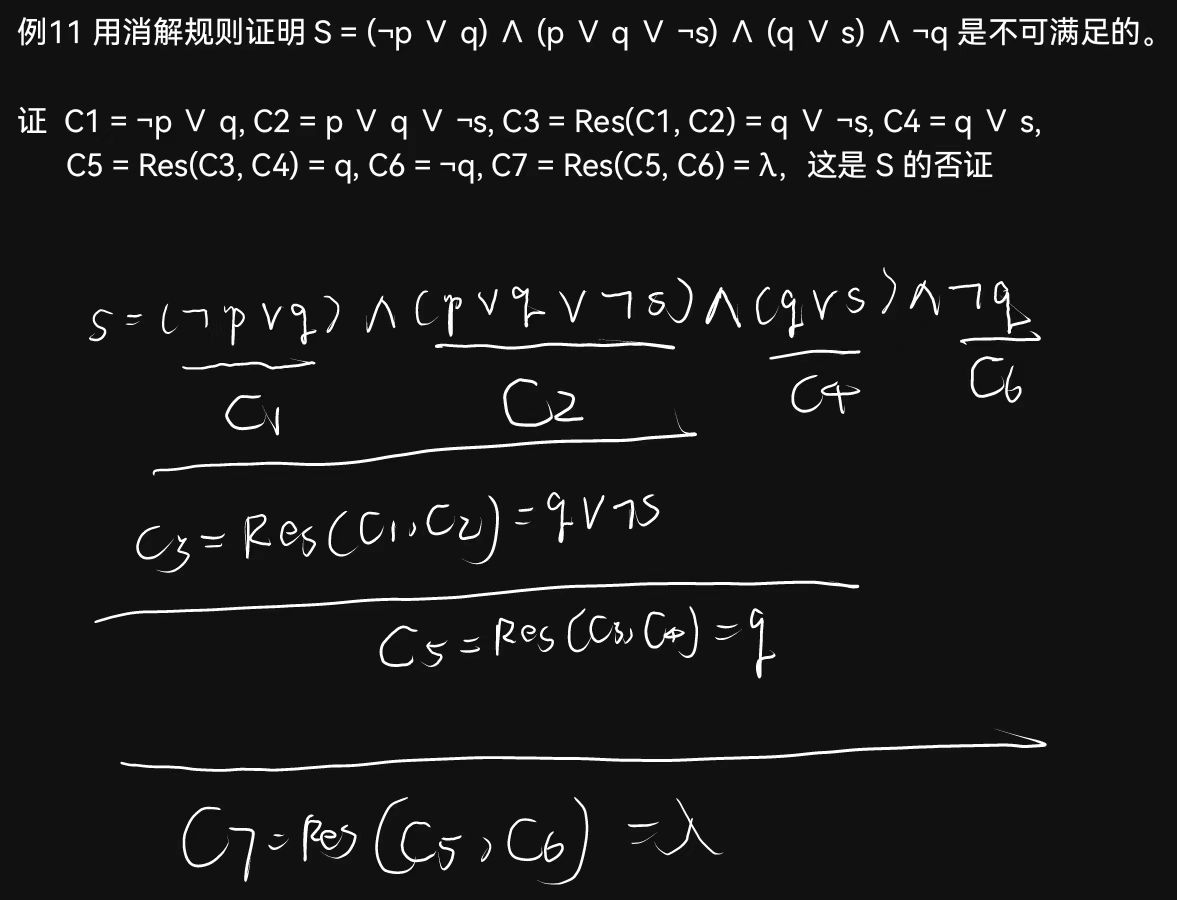 例11 用消解规则证明 S = (¬p ∨ q) ∧ (p ∨ q ∨ ¬s) ∧ (q ∨ s) ∧ ¬q 是不可满足的。
证 C1 = ¬p ∨ q, C2 = p ∨ q ∨ ¬s, C3 = Res(C1, C2) = q ∨ ¬s, C4 = q ∨ s,
C5 = Res(C3, C4) = q, C6 = ¬q, C7 = Res(C5, C6) = λ, 这是 S 的否证
S=(¬p∨q)∧(p∨q∨¬s)∧(q∨s)∧¬q
C1 C2 C4 C6
C3=Res(C1,C2)=q∨¬s
C5=Res(C3,C4)=q
C7=Res(C5,C6)=λ